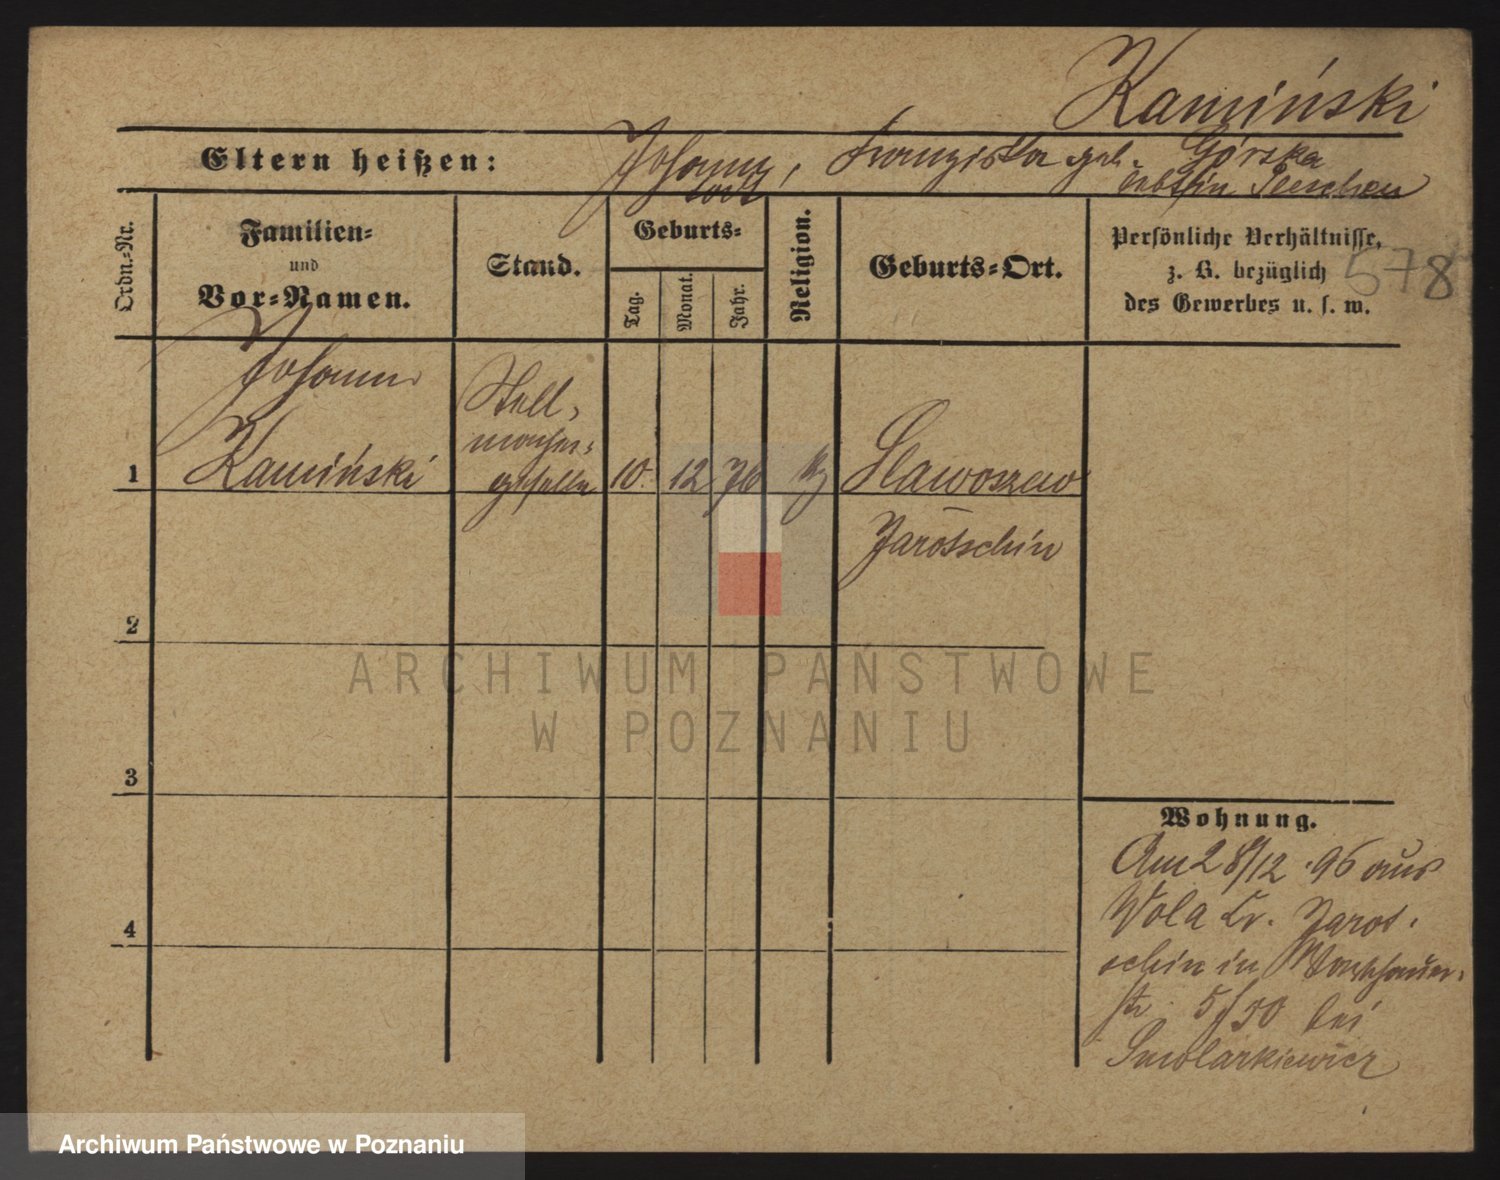 Kamiński
Eltern heißen: Johann, Franziska geb. Górska
todt
Ordn.-Nr.
Familien-
und
Vor-Namen.
Stand.
Geburts-
Tag.
Monat.
Jahr.
Religion.
Geburts-Ort.
Persönliche Verhältnisse,
z. B. bezüglich
des Gewerbes u. s. w.
578
Johann
Stell-
macher-
1 Kamiński geselle 10. 12 76 Slawoszew
Jarotschin
2
3
4
Wohnung.
Am 28/12. 96 aus
Wola Kr. Jarot-
schin in
str. 5/50 bei
Smolarkiewicz
ARCHIWUM PAŃSTWOWE
W POZNANIU
Archiwum Państwowe w Poznaniu